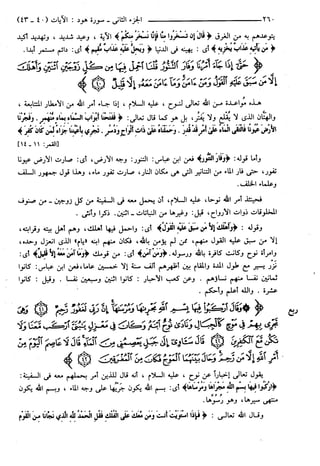 ٢٦٠ الجزء الثاني - سورة هود : الآيات (٤٠ - ٤٣)
يتوعدهم به من الغرق ﴿قال إن تسخروا منا فإنا نسخر منكم﴾ الآية ، وعيد شديد ، وتهديد أكيد
﴿من يأتيه عذاب يخزيه﴾ أي : يهينه في الدنيا ﴿ويحل عليه عذاب مقيم﴾ أي : دائم مستمر أبدا.
حتى إذا جاء أمرنا وفار التنور قلنا احمل فيها من كل زوجين اثنين وأهلك
إلا من سبق عليه القول ومن آمن وما آمن معه إلا قليل
هذه مواعدة من الله تعالى لنوح ، عليه السلام ، إذا جاء أمر الله من الأمطار المتتابعة ،
والهتان الذي لا يقلع ولا يفتر، بل هو كما قال تعالى: ﴿ففتحنا أبواب السماء بماء منهمر. وفجرنا
الأرض عيونا فالتقى الماء على أمر قد قدر. وحملناه على ذات ألواح ودسر. تجري بأعيننا جزاء لمن كان كفر﴾
[القمر: ١١ - ١٤]
وأما قوله: ﴿وفار التنور﴾ فعن ابن عباس: التنور: وجه الأرض، أي: صارت الأرض عيونا
تفور، حتى فار الماء من التنانير التي هي مكان النار، صارت تفور ماء، وهذا قول جمهور السلف
وعلماء الخلف.
فحينئذ أمر الله نوحا، عليه السلام، أن يحمل معه في السفينة من كل زوجين - من صنوف
المخلوقات ذوات الأرواح، قيل: وغيرها من النباتات - اثنين، ذكرا وأنثى .
وقوله : ﴿وأهلك إلا من سبق عليه القول﴾ أي: واحمل فيها أهلك، وهم أهل بيته وقرابته،
إلا من سبق عليه القول منهم، ممن لم يؤمن بالله، فكان منهم ابنه «يام» الذي انعزل وحده،
وامرأة نوح وكانت كافرة بالله ورسوله. ﴿ومن آمن﴾ أي: من قومك ﴿وما آمن معه إلا قليل﴾ أي:
نزر يسير مع طول المدة والمقام بين أظهرهم ألف سنة إلا خمسين عاما، فعن ابن عباس: كانوا
ثمانين نفسا منهم نساؤهم . وعن كعب الأحبار : كانوا اثنين وسبعين نفسا . وقيل : كانوا
عشرة . والله أعلم وأحكم .
وقال اركبوا فيها بسم الله مجراها ومرساها إن ربي لغفور رحيم ٤١ وهي
ربع
تجري بهم في موج كالجبال ونادى نوح ابنه وكان في معزل يا بني اركب معنا ولا
تكن مع الكافرين ٤٢ قال سآوي إلى جبل يعصمني من الماء قال لا عاصم اليوم من
أمر الله إلا من رحم وحال بينهما الموج فكان من المغرقين ٤٣
يقول تعالى إخبارا عن نوح ، عليه السلام ، أنه قال للذين أمر بحملهم معه في السفينة:
﴿اركبوا فيها بسم الله مجراها ومرساها﴾ أي: بسم الله يكون جريها على وجه الماء ، وبسم الله يكون
منتهى سيرها، وهو رسوها.
وقال الله تعالى : ﴿فإذا استويت أنت ومن معك على الفلك فقل الحمد لله الذي نجانا من القوم